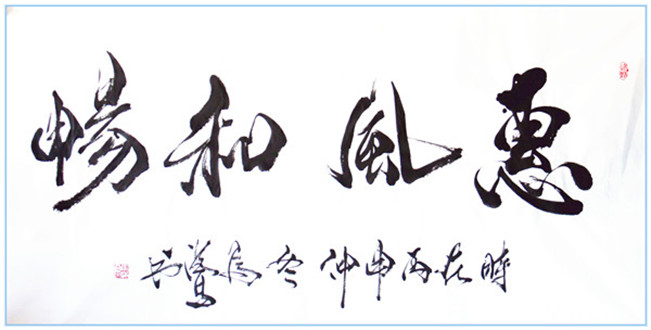 惠風和暢
時在丙申仲冬馬書